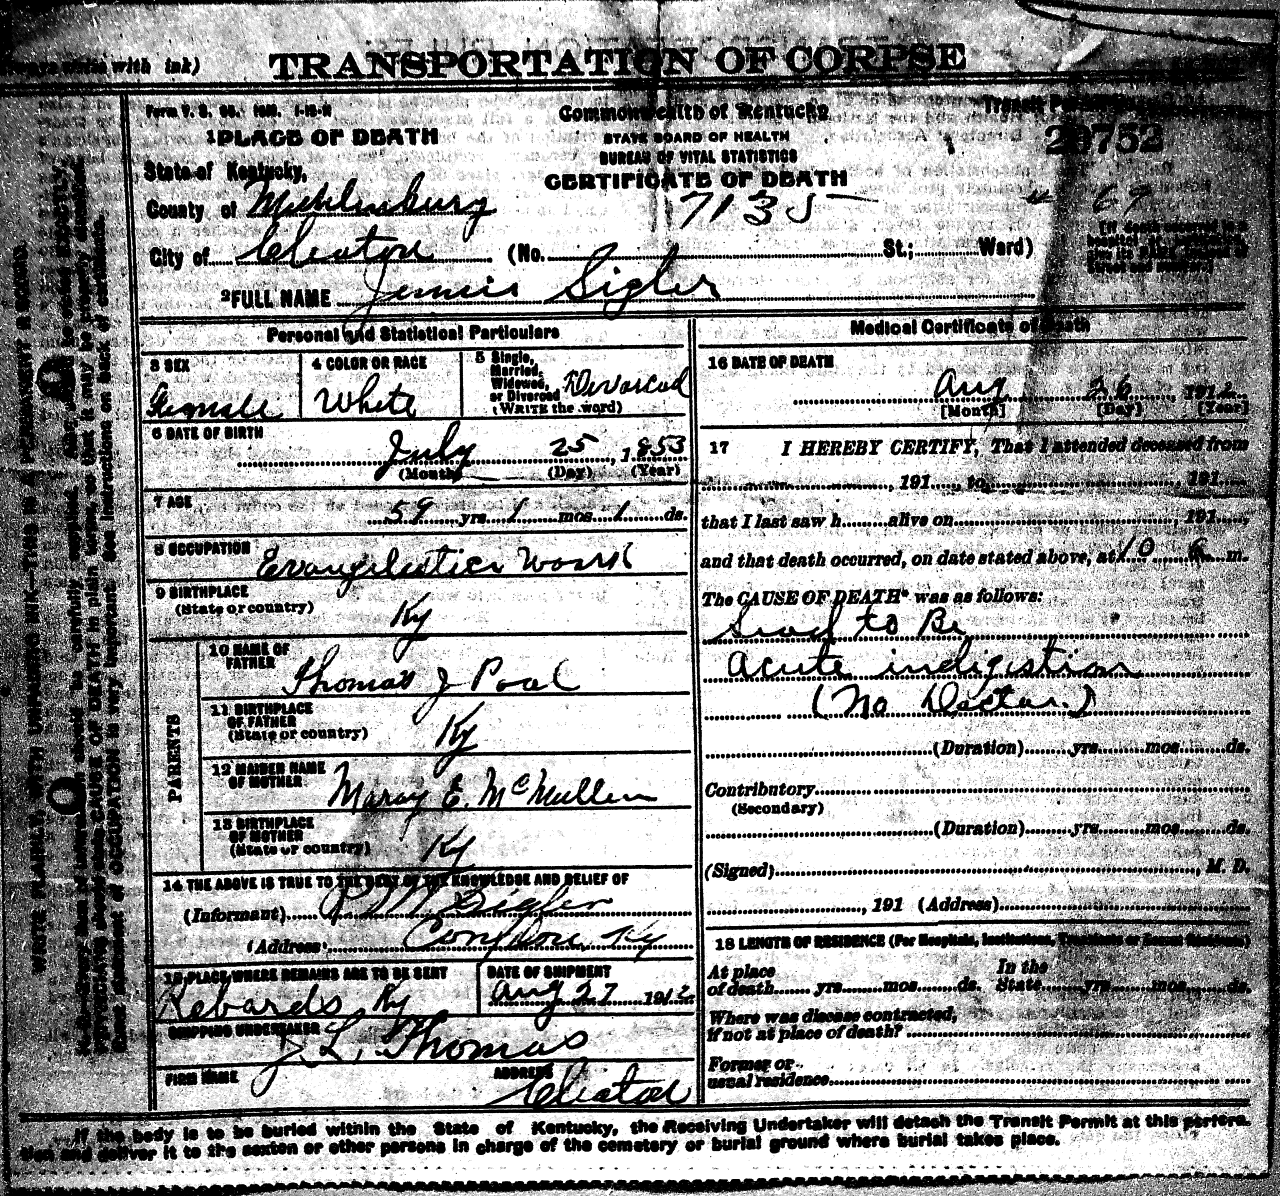 with ink)
TRANSPORTATION OF CORPSE
Form V. S.
Commonwealth of Kentucky
Transit
STATE BOARD OF HEALTH
BUREAU OF VITAL STATISTICS
CERTIFICATE OF DEATH
29752
7135
67
1 PLACE OF DEATH
State of Kentucky,
County of Muhlenburg
City of Cleaton (No. St.; Ward)
2 FULL NAME Jennie Sigler
Personal and Statistical Particulars
3 SEX
Female
4 COLOR OR RACE
White
5 Single,
Married,
Widowed,
or Divorced
(WRITE the word)
Devorced
6 DATE OF BIRTH
July 25, 1853
(Month) (Day) (Year)
7 AGE
59 yrs. 1 mos. 1 ds.
8 OCCUPATION
Evangelistic Work
9 BIRTHPLACE
(State or country)
Ky
PARENTS
10 NAME OF
FATHER
Thomas J Pool
11 BIRTHPLACE
OF FATHER
(State or country)
Ky
12 MAIDEN NAME
OF MOTHER
Mary E. McMullen
13 BIRTHPLACE
OF MOTHER
(State or country)
Ky
14 THE ABOVE IS TRUE TO THE BEST OF THE KNOWLEDGE AND BELIEF OF
(Informant) Sigler
(Address) Ky
15 PLACE WHERE REMAINS ARE TO BE SENT
Rebards, Ky
DATE OF SHIPMENT
Aug 27 1912
SHIPPING UNDERTAKER
J L. Thomas
FIRM NAME
ADDRESS
Cleaton
Medical Certificate of Death
16 DATE OF DEATH
Aug 26, 1912
[Month] [Day] [Year]
17 I HEREBY CERTIFY, That I attended deceased from
, 191 , to , 191
that I last saw h alive on , 191 ,
and that death occurred, on date stated above, at 10 m.
The CAUSE OF DEATH* was as follows:
Said to Be
acute indigestion
(No Doctor.)
(Duration) yrs. mos. ds.
Contributory
(Secondary)
(Duration) yrs. mos. ds.
(Signed) , M. D.
, 191 (Address)
18 LENGTH OF RESIDENCE (For Hospitals, Institutions, Transients or Recent Residents)
At place
of death yrs. mos. ds.
In the
State yrs. mos. ds.
Where was disease contracted,
if not at place of death?
Former or
usual residence
If the body is to be buried within the State of Kentucky, the Receiving Undertaker will detach the Transit Permit at this perfora-
tion and deliver it to the sexton or other persons in charge of the cemetery or burial ground where burial takes place.
WRITE PLAINLY, WITH UNFADING INK—THIS IS A PERMANENT RECORD